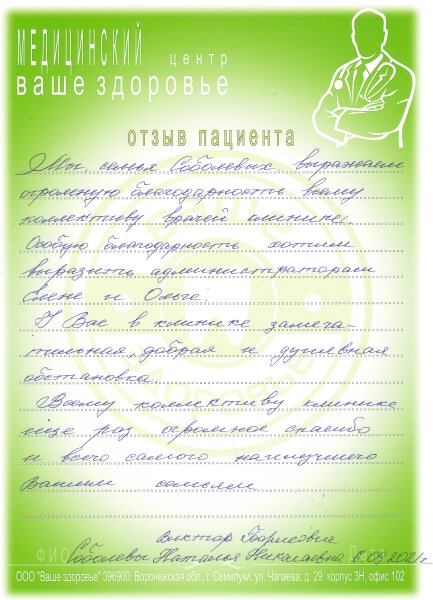 МЕДИЦИНСКИЙ центр
ваше здоровье
отзыв пациента
Мы семья Соболевых выражаем
огромную благодарность всему
коллективу врачей клинике.
Особую благодарность хотим
выразить администраторам
Елене и Ольге.
У Вас в клинике замеча-
тильная, добрая и душевная
обстановка.
Всему коллективу клинике
ещё раз огромное спасибо
и всего самого наилучшего
Вашим семьям
Виктор Борисович
ФИО Соболевы Наталья Николаевна 6.03.2021г
ООО "Ваше здоровье" 396900, Воронежская обл., г. Семилуки, ул. Чапаева, д. 29, корпус 3Н, офис 102